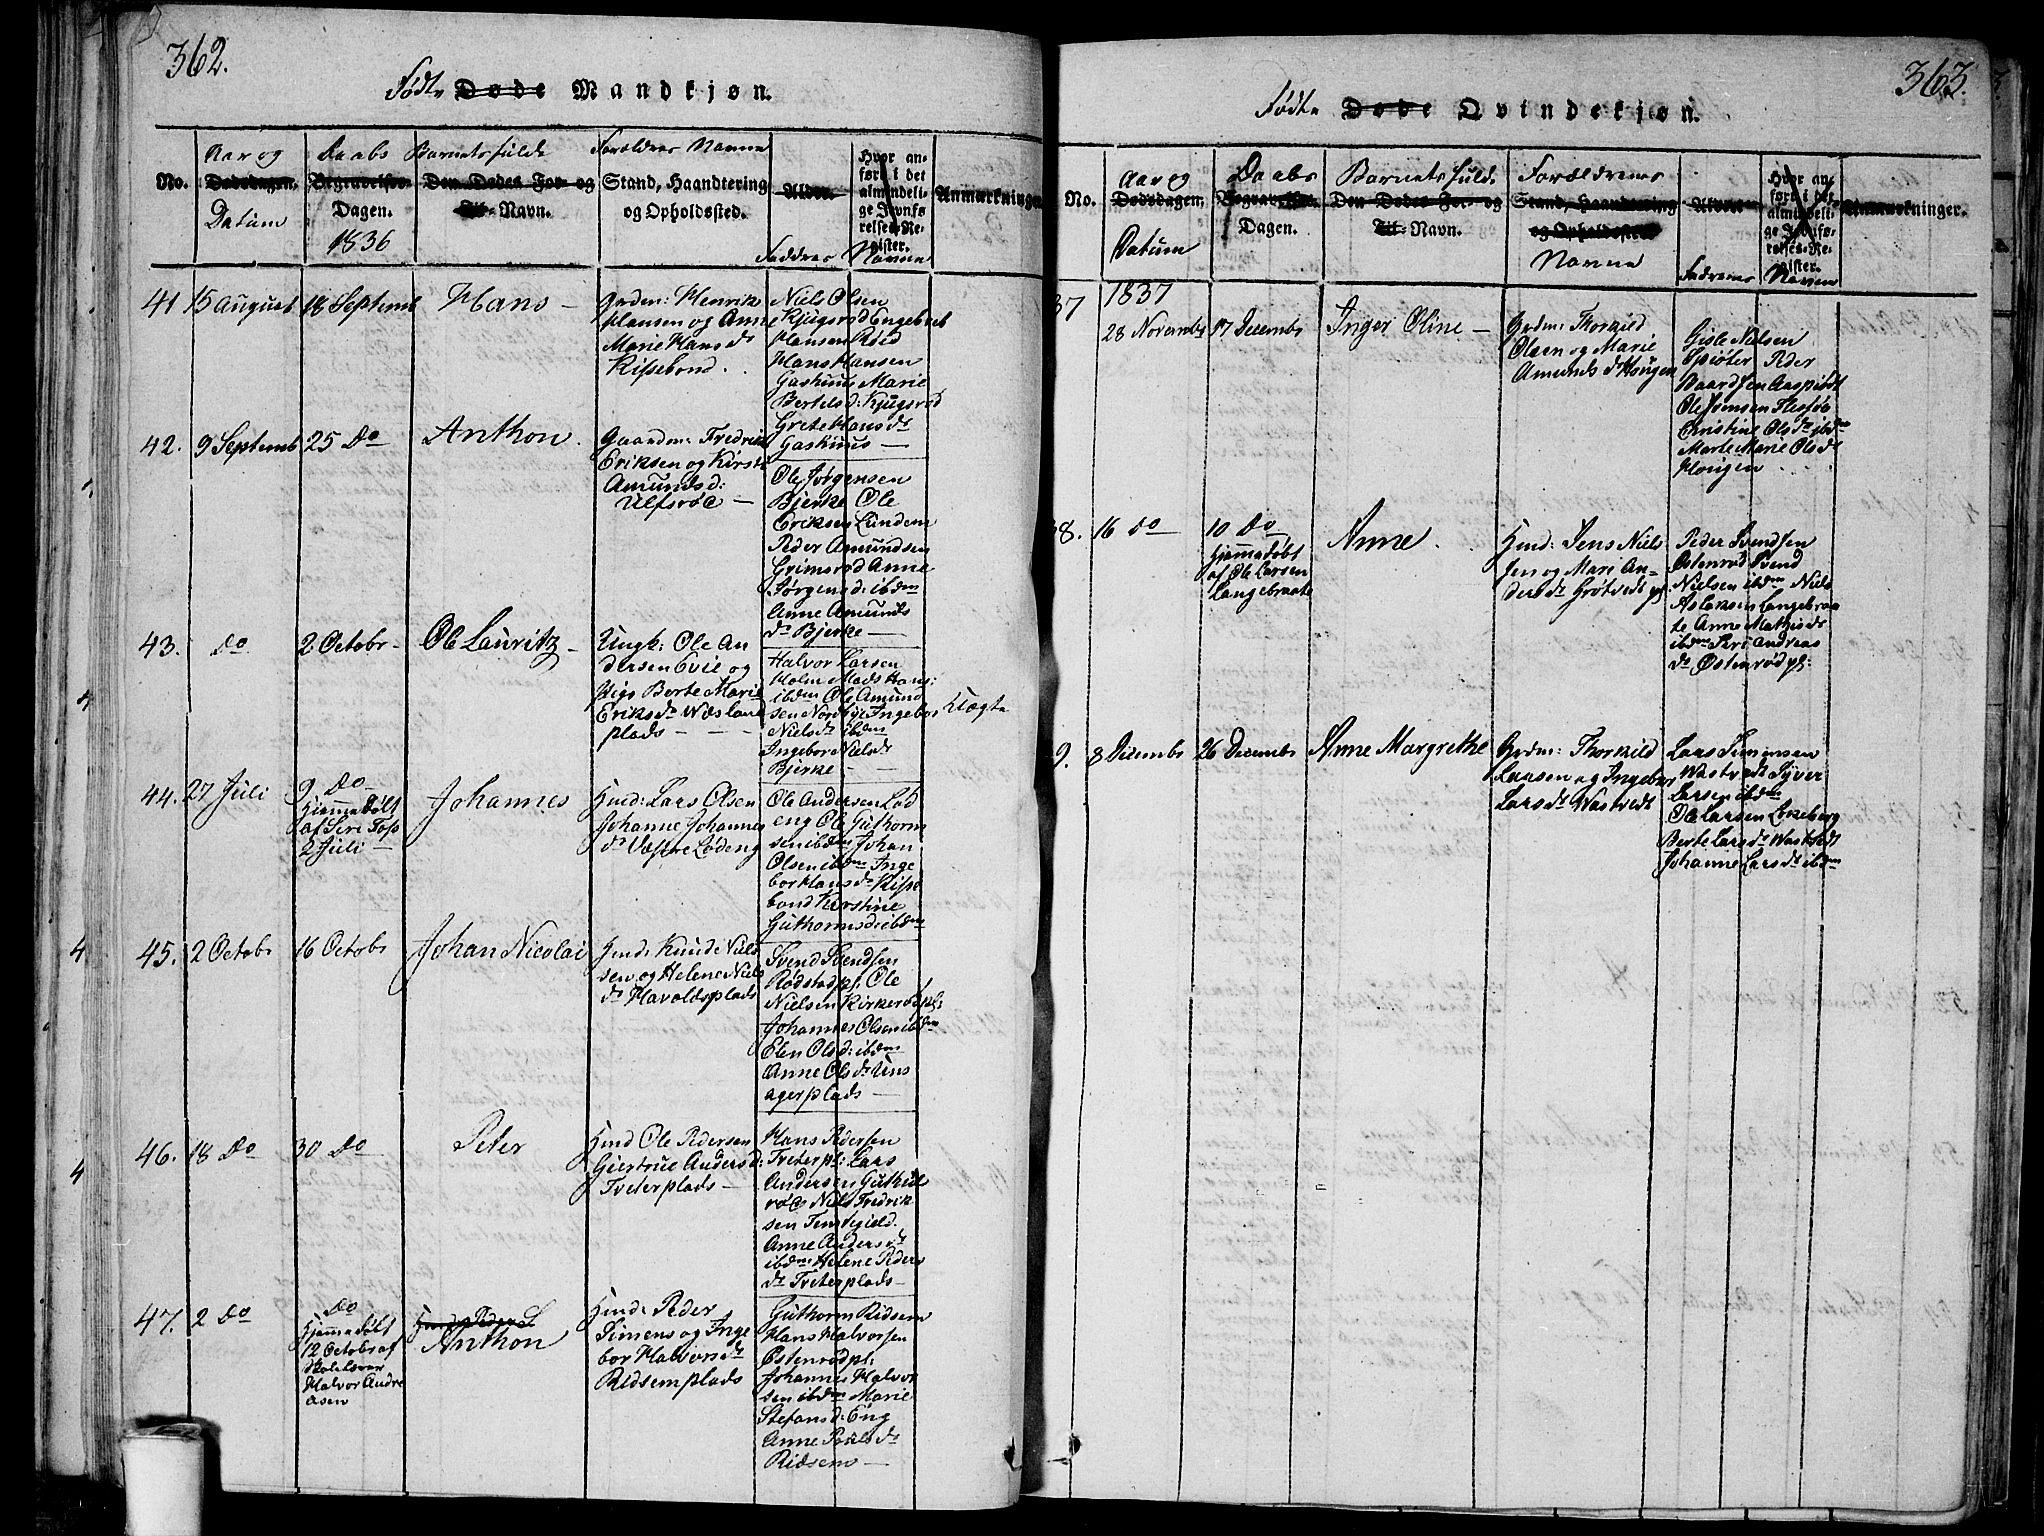 362.
Fødte Døde Mandkjøn.
No.
Aar og
Dødsdagen.
Datum
Daabs
Begravelses-
Dagen.
1836
Barnets fulde
Den Dødes For- og
Til-Navn.
Forældres Navne
Stand, Haandtering
og Opholdssted.
Alder.
Faddres Navne
Hvor an-
ført i det
almindeli-
ge Jevnfø-
relses-Re-
gister.
Anmærkninger
41 15 August 18 Septemb Hans -
Grdm: Henrik
Hansen og Anne
Marie Hansdr
Rissebond.
Niels Olsen
Kjugsrød Engebret
Hansen Røed
Hans Hansen
Gashuus Marie
Bertelsd: Kjugsrød
Grete Hansdr
Gashuus -
42. 9 Septemb 25 Do Anthon.
Gaardm: Fredrik
Eriksen og Kirsti
Amundsd:
Ulfsrøe -
Ole Jørgensen
Bjerke Ole
Eriksen Lundem
Peder Amundsen
Grimsrød Anne
Jørgensd: ibdm
Anne Amunds
dr Bjerke -
43. Do 2 Octobr - Ole Lauritz -
Ungk: Ole An
dersen Evie og
Pige Berte Marie
Eriksdr Wæsland
plads - - -
Halvor Larsen
Holm Mads Hans:
ibdm Ole Amund
sen Nordbye Ingebor
Nielsdr ibdm
Ingebor Nielsdr
Bjerke -
Uægte
44. 27 Juli 9 Do Johannes
Hjemmedøbt
af Siri Foss
2 Juli -
Hmd: Lars Olsen
Johanne Johannes
dr Væstre Lødeng
Ole Andersen Lød
eng Ole Guthorm
sen ibdm Johan
Olsen ibdm Inge
bor Hansdr Risse
bond Kirstine
Guthormsd: ibdm
45. 2 Octobr 16 Octobr Johan Nicolai
Hmd: Knud Niels
sen og Helene Niels
dr Haraldsplads
Svend Svendsen
Rødstadpl: Ole
Nielsen Kirkerødpl:
Johannes Olsen ibdm
Elen Olsd: ibdm
Anne Olsdr Uns
agerplads -
46. 18 Do 30 Do Peter
Hmd Ole Pedersen
Giertrue Andersd:
Treterplads -
Hans Pedersen
Treterpl: Lars
Andersen Guthul
røe Niels Fredrik
sen Femtegjeld.
Anne Andersdr
ibdm Helene Peders
dr Treterplads -
47. 2 Do Do
Hjemmedøbt
12 Octobr af
Skolelærer
Halvor Andre
asen
Hmd: Peder S
Anthon
Hmd: Peder
Simens og Inge
bor Halvorsdr
Ridsemplads
Guthorm Ridsem
Hans Halvorsen
Østenrødpl:
Johannes Halvor
sen ibdm Marie
Stefansd: Eng
Anne Povelsdr
Ridsem -
363.
Fødte Døde Qvindekjøn.
No.
Aar og
Dødsdagen,
Datum
Daabs
Begravelses-
Dagen.
Barnets fulde
Den Dødes For- og
Til-Navn.
Forældrenes
Stand, Haandtering
og Opholdssted
Navne
Alder
Fadrenes Navne
Hvor an-
ført i det
almindeli-
ge Jevnfø-
relses-Re-
gister.
Anmærkninger.
37 1837
28 Novembr 17 Decembr Inger Oline -
Grdm: Thorkild
Olsen og Marie
Amundsdr Hougen
Gisle Nilsen
Spiøter Peder
Baardsen Aaspiødt
Ole Jensen
Christine Olsdr ibdm
Marte Marie Olsdr
Hougen
38. 16 Do 10 Do Anne.
Hjemmedøbt
af Ole Larsen
Langebraate
Hmd: Jens Niels
sen og Mari An-
dersdr Grøtvedt pl.
Peder Svendsen
Østenrød Svend
Nielsen ibdm Niels
Aslaksen Langebraa
te Anne Mathisdr
ibdm Siri Andreas
dr Østenrød pl:
9. 8 Decembr 26 Decembr Anne Margrethe
Grdm: Thorkild
Larsen og Ingebor
Larsdr Wastvedt
Lars Simensen
Wastvedt Syver
Larsen ibdm
Ole Larsen Løkeberg
Berte Larsdr Wastvedt
Johanne Larsdr ibdm